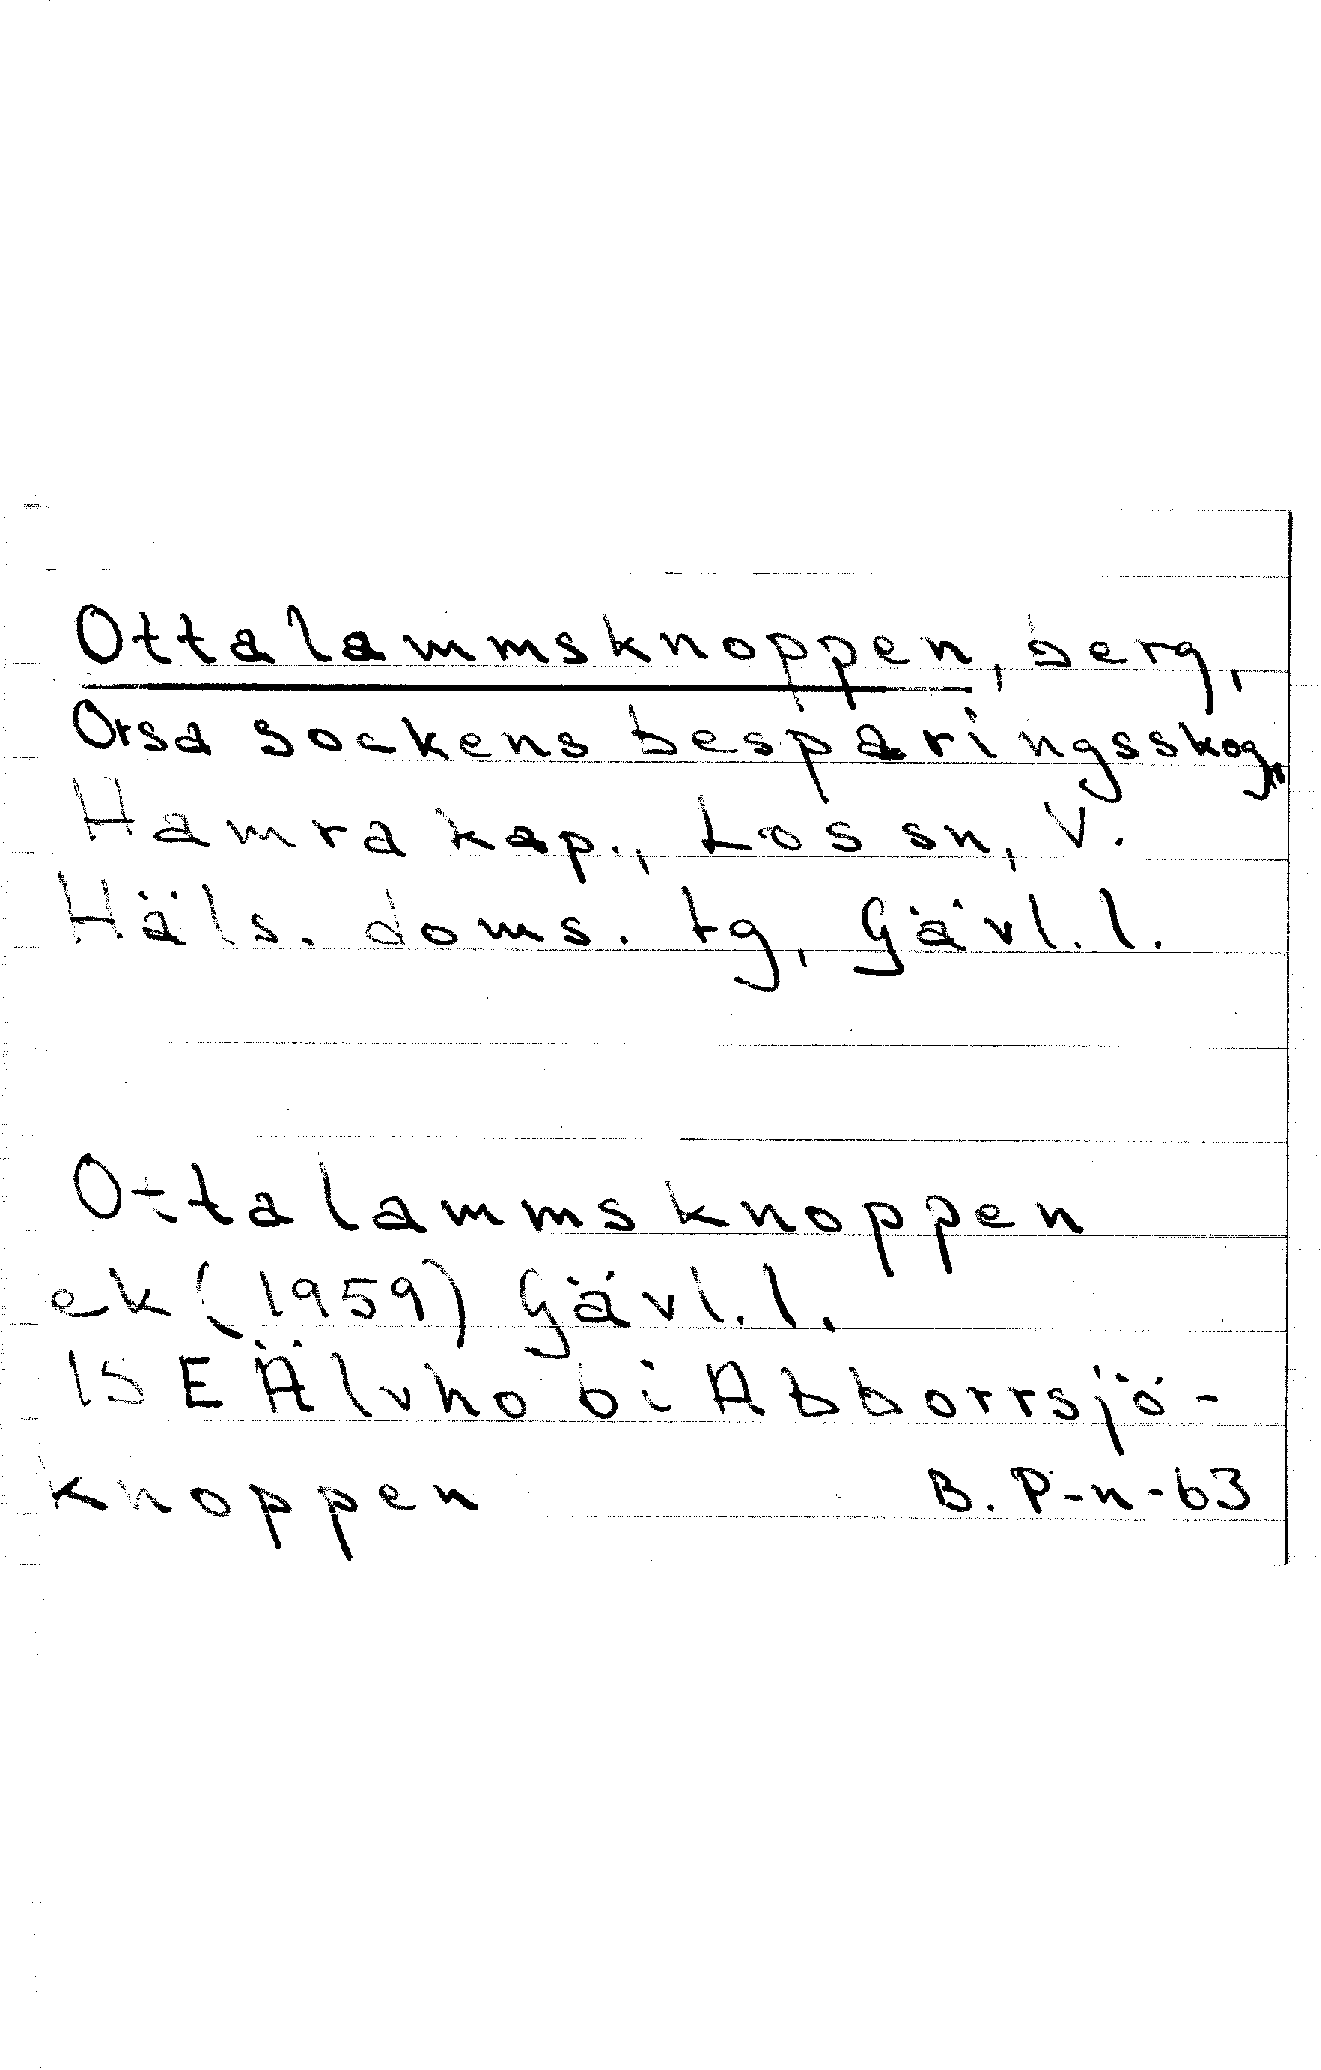 Ottalammsknoppen, berg,
Orsa sockens besparingsskog,
Hamra kap., Los sn, V.
Häls. doms. tg, Gävl. l.
Ottalammsknoppen
ek (1959) Gävl. l.
15 E Älvho bi Abborrsjö-
knoppen B. P-n-63